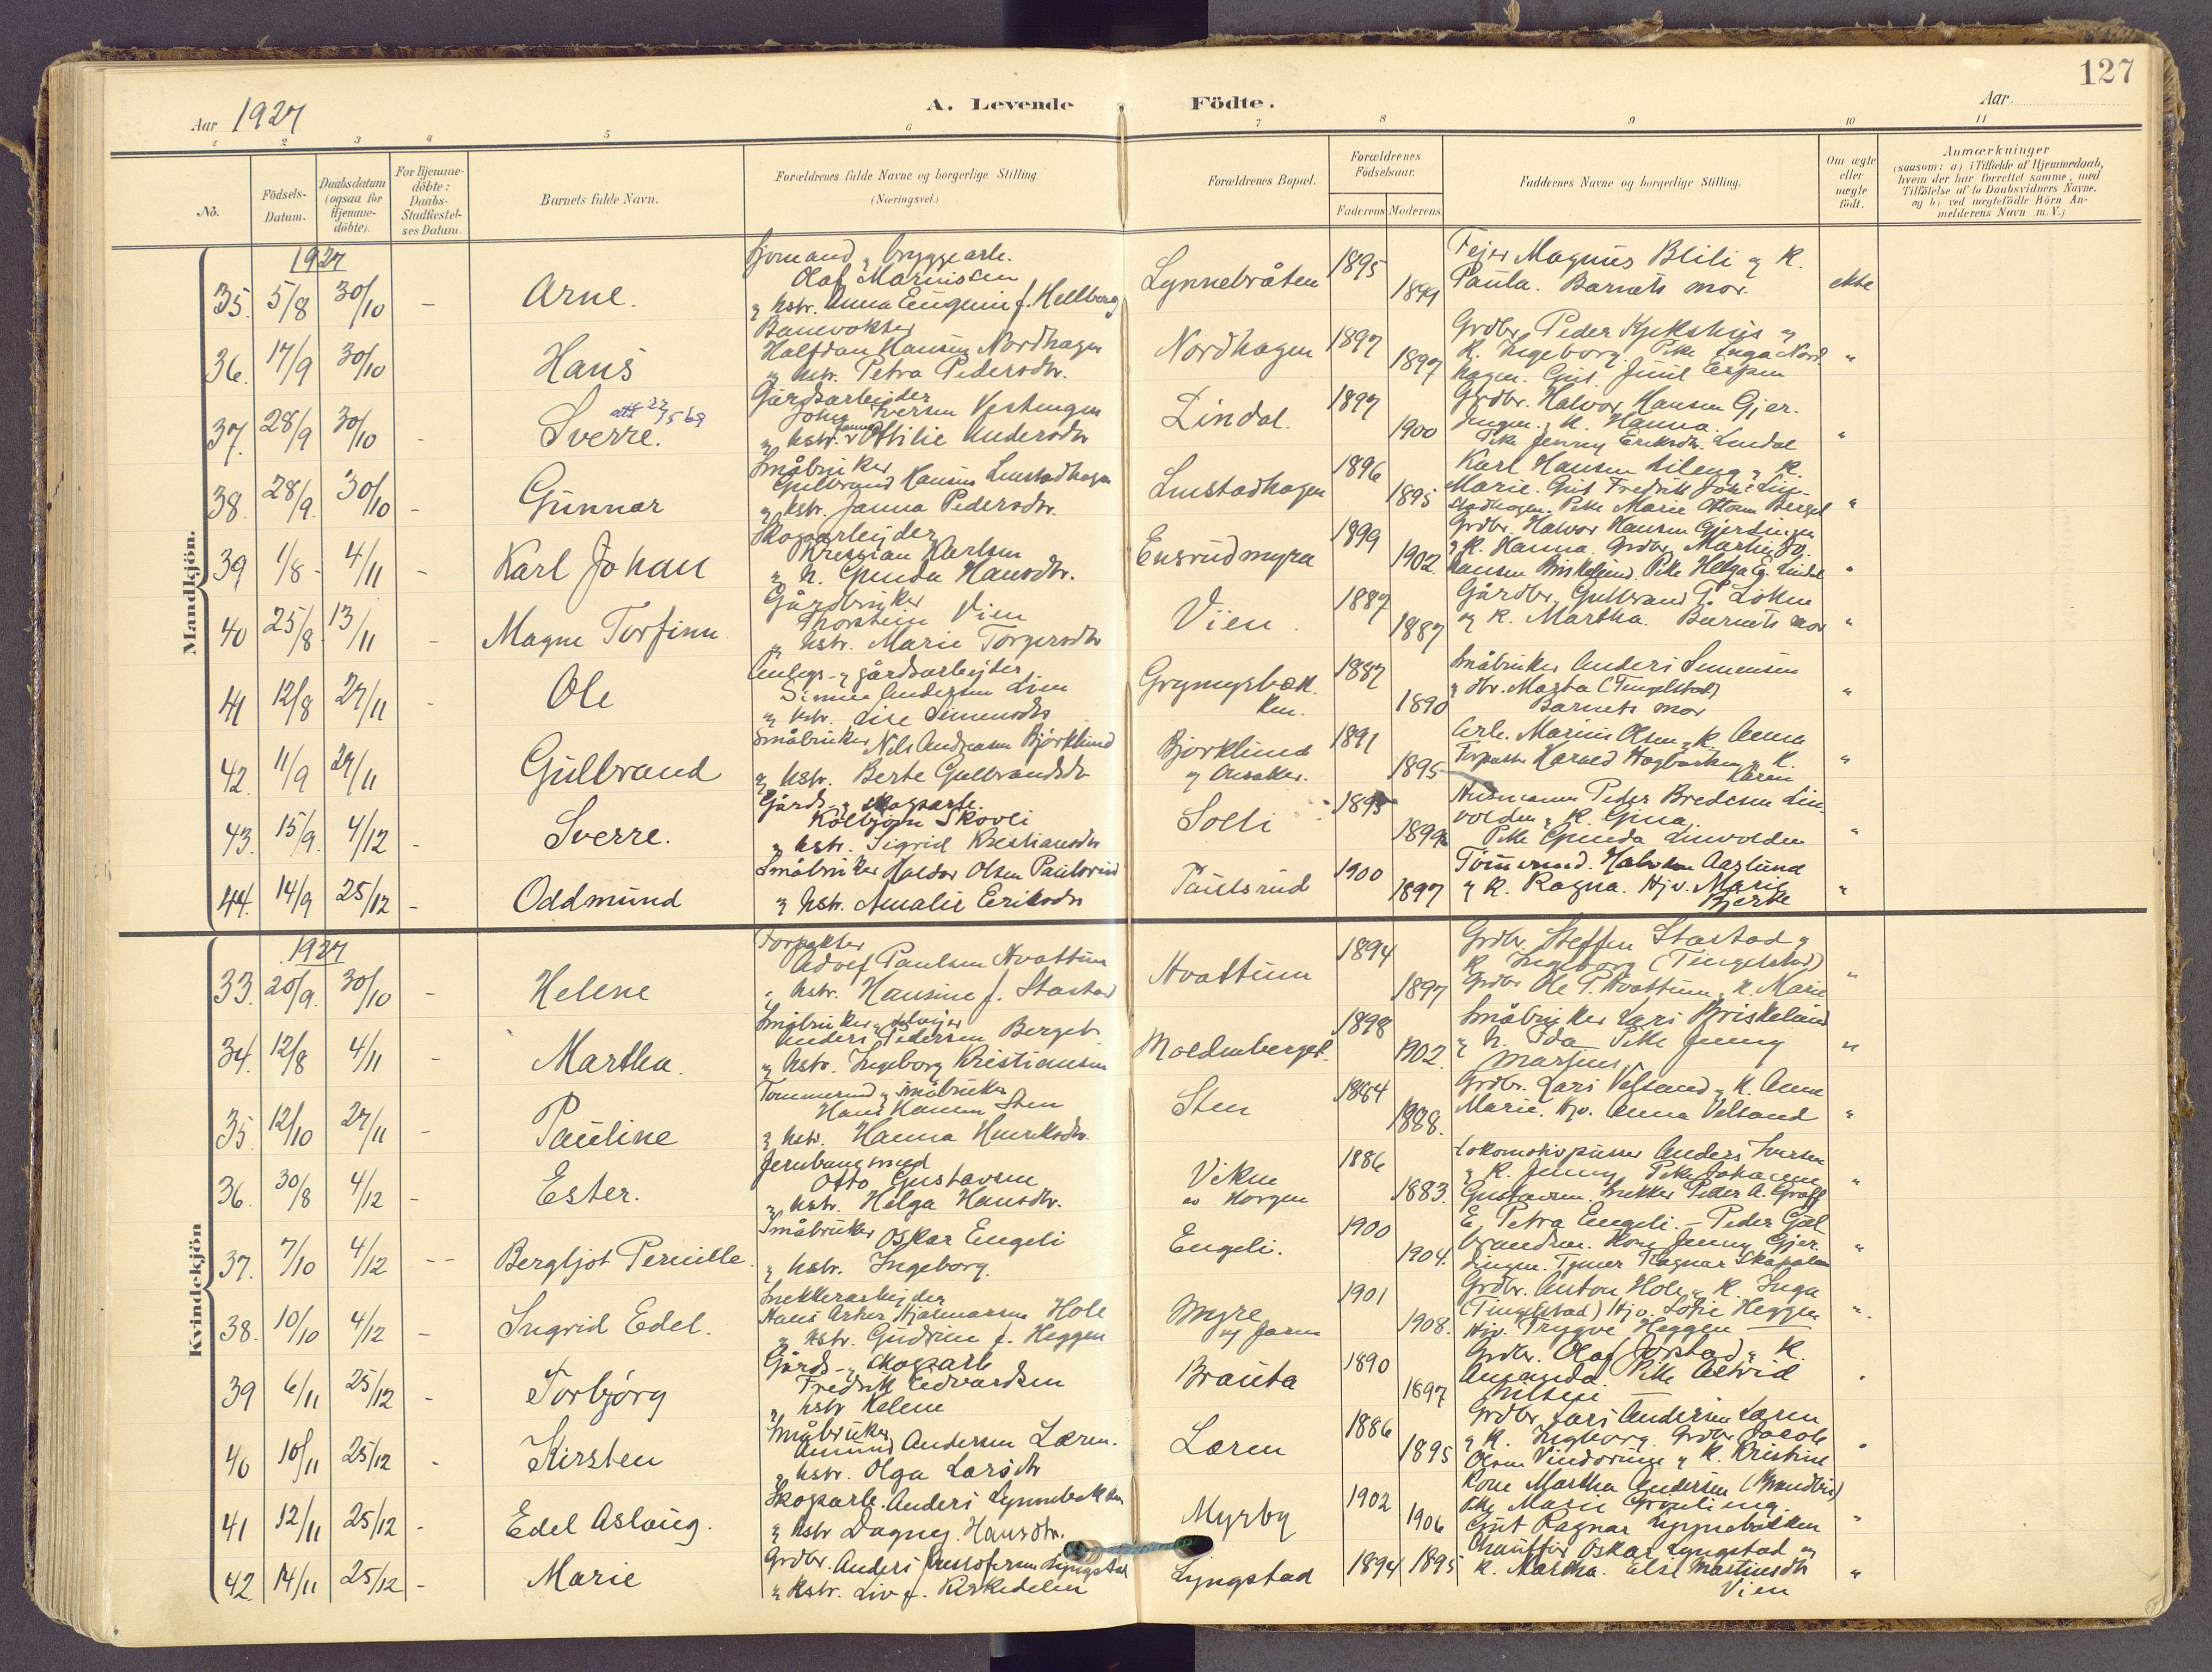 127
A. Levende Födte.
Aar 1927
Aar
1 2 3 4 5 6 7 8 9 10 11
No.
Födsels-Datum.
Daabsdatum (ogsaa for Hjemme-döbte).
For Hjemme-döbte: Daabs-Stadfæstel-ses Datum.
Barnets fulde Navn.
Forældrenes fulde Navne og borgerlige Stilling (Næringsvei.)
Forældrenes Bopæl.
Forældrenes Födselsaar.
Faderens Moderens
Faddernes Navne og borgerlige Stilling.
Om ægte eller uægte födt.
Anmærkninger
(saasom: a) i Tilfælde af Hjemmedaab, hvem der har forrettet samme, med Tilföielse af to Daabsvidners Navne. og b) ved uægtefödte Börn An-melderens Navn m. V.)
Mandkjön.
1927
35. 5/8 30/10 - Arne.
Olaf Marinissen
& hstr. Anna Eugenie f. Hellberg
Lynnebråten 1895 1899
Fejer Magnus Blili og K.
Paula. Barnets mor. ekte
36. 17/9 30/10 Hans
Banevokter
Halfdan Hansen Nordhagen
& hstr. Petra Pedersdtr.
Nordhagen 1897 1897
Grdbr. Peder Kjekshus og
K. Ingeborg. Pike Inga Nord-
hagen. Gut Juul Espen "
37. 28/9 30/10 - Sverre.
Gårdsarbejder
Johs Iversen Vestengen
& hstr. Ottilie Andersdtr
Lindal. 1897 1900
Grdbr. Halvor Hansen Gjer-
dingen & K. Hanna.
Pike Jenny Eriksdtr. Lindal "
38. 28/9. 30/10 - Gunnar
Småbruker
Gulbrand Hansen Lmstadhagen
& hstr. Janna Pedersdtr.
Lmstadhagen 1896 1895
Karl Hansen Lileng & K.
Marie. Gut Fredrik Johs Lm-
stadhagen. Pike Marie "
39 1/8 - 4/11 - Karl Johan
Skogarbejder
Kristian Karlsen
& h. Gunda Hansdtr.
Ensrudmyra 1899 1902.
Grdbr. Halvor Hansen Gjerdingen
& K. Hanna. Grdbr. Martin Jo-
hansen Briskelund. Pike Helga Lindal "
40 25/8 13/11 - Magne Torfinn
Gårdbruker
Thorstein Vien
& hstr. Marie Torgersdtr
Vien. 1887 1887
Gårdbr. Gulbrand T. Løken
og K. Martha. Barnets mor "
41 12/8 27/11 - Ole
Anlegs- & gårdsarbejder
Simen Andersen Lien
& hstr. Lise Simensdtr
Grymyrbæk-
ken. 1887 1890
Småbruker Anders Simensen
& dtr. Marta (Tingelstad)
Barnets mor "
42. 11/9 27/11 Gulbrand
Småbruker Nils Andreasen Bjørklund
& hstr. Berte Gulbrandsdtr
Bjorklund 1891 1895
Arb. Marius Olsen & K. Anna
Harald Hagbakken & K.
Karen "
43. 15/9. 4/12 - Sverre.
Gårds- & skogsarb.
Kolbjørn Skovli
& hstr. Sigrid Kristiansdtr
Solli 1895 1899
Husmann Peder Bredesen Lin-
volden & K. Gina.
Pike Gunda Linvolden "
44. 14/9 25/12 - Oddmund
Småbruker Haldor Olsen Paulsrud
& hstr. Amalie Eriksdtr
Paulsrud 1900 1897
Tømmermd. Aaslund
& K. Ragna. Hjv. Marie
Bjerke "
Kvindekjön
1927
33. 20/9. 30/10 - Helene
Forpakter
Adolf Paulsen Hvattum
& hstr. Hansine f. Stastad
Hvattum 1894 1897
Grdbr. Steffen Stastad &
K. Ingeborg (Tingelstad)
Grdbr Ole P. Hvattum & K. Marie "
34. 12/8 4/11 - Martha.
Småbruker &
Anders Pedersen Berget
& hstr. Ingeborg Kristiansen
Moldenberget. 1898 1902.
Småbruker Lars Briskelund
& h. Ida Pike Jenny
Martins "
35. 12/10 27/11 - Pauline
Tømmermd & småbruker
Hans Hansen Sten
& hstr. Hanna Henriksdtr.
Sten 1884 1888.
Grdbr. Lars Velsand & K. Anne
Marie. Hjv. Anna Velsand "
36. 30/8 4/12 - Ester.
Jernbanemand
Otto Gustavsen
& hstr. Helga Hansdtr.
Viken 1886 1883.
Lokomotivpusser Anders Iversen
& K. Jenny Pike Johanne
Gustavsen. Snekker Peder A. Graff "
37. 7/10 4/12 -- Bergljot Pernille.
Småbruker Oskar Engeli
& hstr. Ingeborg.
Engeli. 1900 1904.
E. Petra Engeli. - Peder Gul-
brandsen. Kone Jenny Gjer-
dingen. Ragnar "
38. 10/10 4/12 - Ingrid Edel.
Snekkerarbejder
Hans Arthur Hjalmarsen Hole
& hstr. Gudrun f. Heggen
Myre 1901 1908.
Grdbr. Anton Hole & K. Inga
(Tingelstad) Hjv. Sofie Heggen
Hjv. Trygve Heggen "
39 6/11 25/12 - Torbjörg
Gårds- & skogsarb
Fredrik Edvardsen
& hstr Helene
Brauta 1890 1897
Grdbr. Olaf Jorstad & K.
Amanda. Pike Astrid
Nilsen "
40 10/11 25/12 - Kirsten
Småbruker
Amund Andersen Læren.
& hstr. Olga Larsdtr
Læren 1886 1895
Grdbr Lars Andersen Læren
& K. Ingeborg. Grdbr. Jacob
Olsen Vindorum & K. Kristine "
41 12/11 25/12 - Edel Aslaug.
Skogsarb. Anders Lynnebakken
& hstr Dagny Hansdtr.
Myrby 1902 1906
Kone Martha Andersen (Brandbu)
Pike Marie
Gut Ragnar Lynnebakken "
42. 14/11 25/12 - Marie
Grdbr. Anders Kristofersen Lyngstad
& hstr. Liv f. Kirkedelen
Lyngstad 1894 1895
Chauffør Oskar Lyngstad og
K. Martha. Else Martinsdtr
Vien "